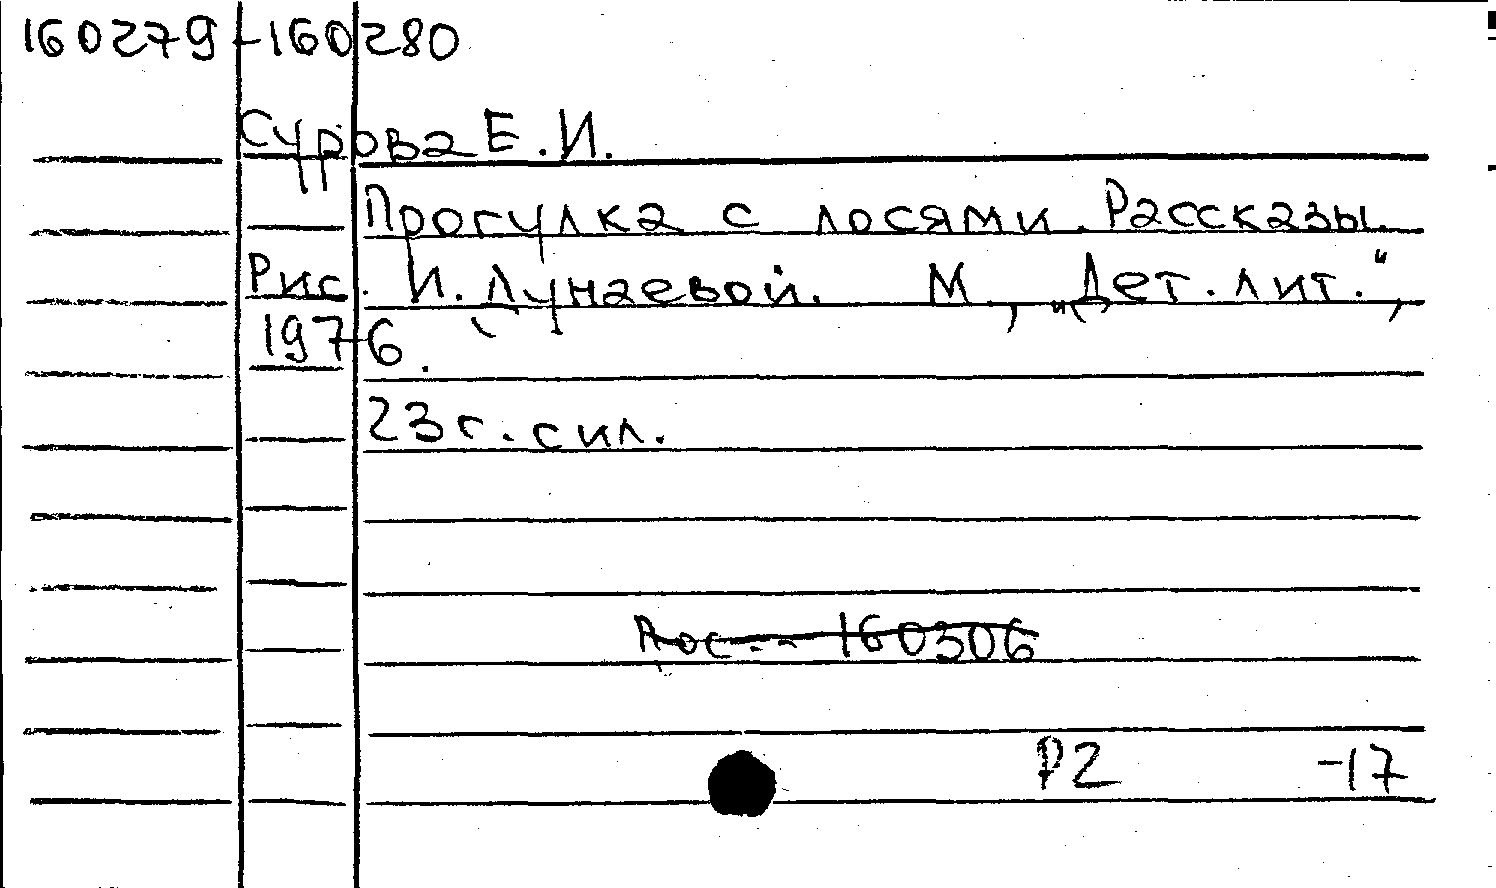 160279-160280
Сурова Е.И.
Прогулка с лосями. Рассказы.
Рис. И. Лунаевой. М., "Дет. лит.",
1976.
23 с. с ил.
160306
Р2 -17